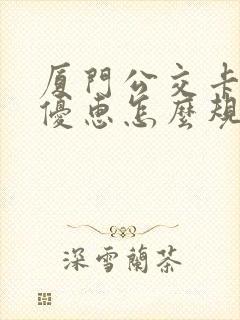 厦門公交卡
優惠怎麽規
深雪蘭茶